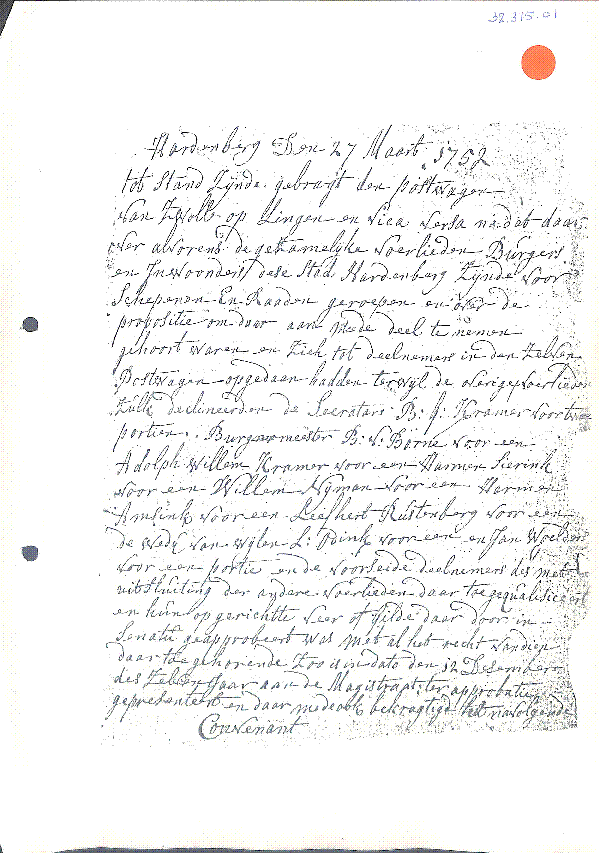 32.315.01
Hardenberg Den 27 Maart 1752
tot Stand Zÿnde gebragt den postwagen
van Zwoll op Lingen en vica versa na dat daar
over alvorens de gesamelÿke voerlieden Burgers
en Inwoonders deser Stad Hardenberg Zÿnde voor
Schepenen En Raaden geroepen en over de
propositie om daar aan mede deel te nemen
gehoort waren en Zich tot deelnemers in den Zelven
Postwagen opgedaan hadden terwÿl de overige voerlieden
Zulk declineerden de Secretaris B: J: Kramer voor twe
portien. Burgermeester B: v: Borne voor een
Adolph Willem Kramer voor een Harmen Sierink
voor een Willem Nÿman voor een Harmen
Amsink voor een Leefhert Rustenberg voor een
de Wedÿ van wÿlen L: Bÿink voor een en Jan Woelders
voor een portie en de voorseide deelnemers des met
uitsluiting der andere voerlieden daar toe gequalificeert
en hun opgerichtte Veer of Gilde daar door in
Senatu geapprobeert was met al het recht van dien
daar toe gehorende Zoo is in dato den 12 Desember
des Zelven Jaar aan de Magistraat ter approbatie
gepresenteert en daar mede ook bekragtigd het navolgende
Convenant